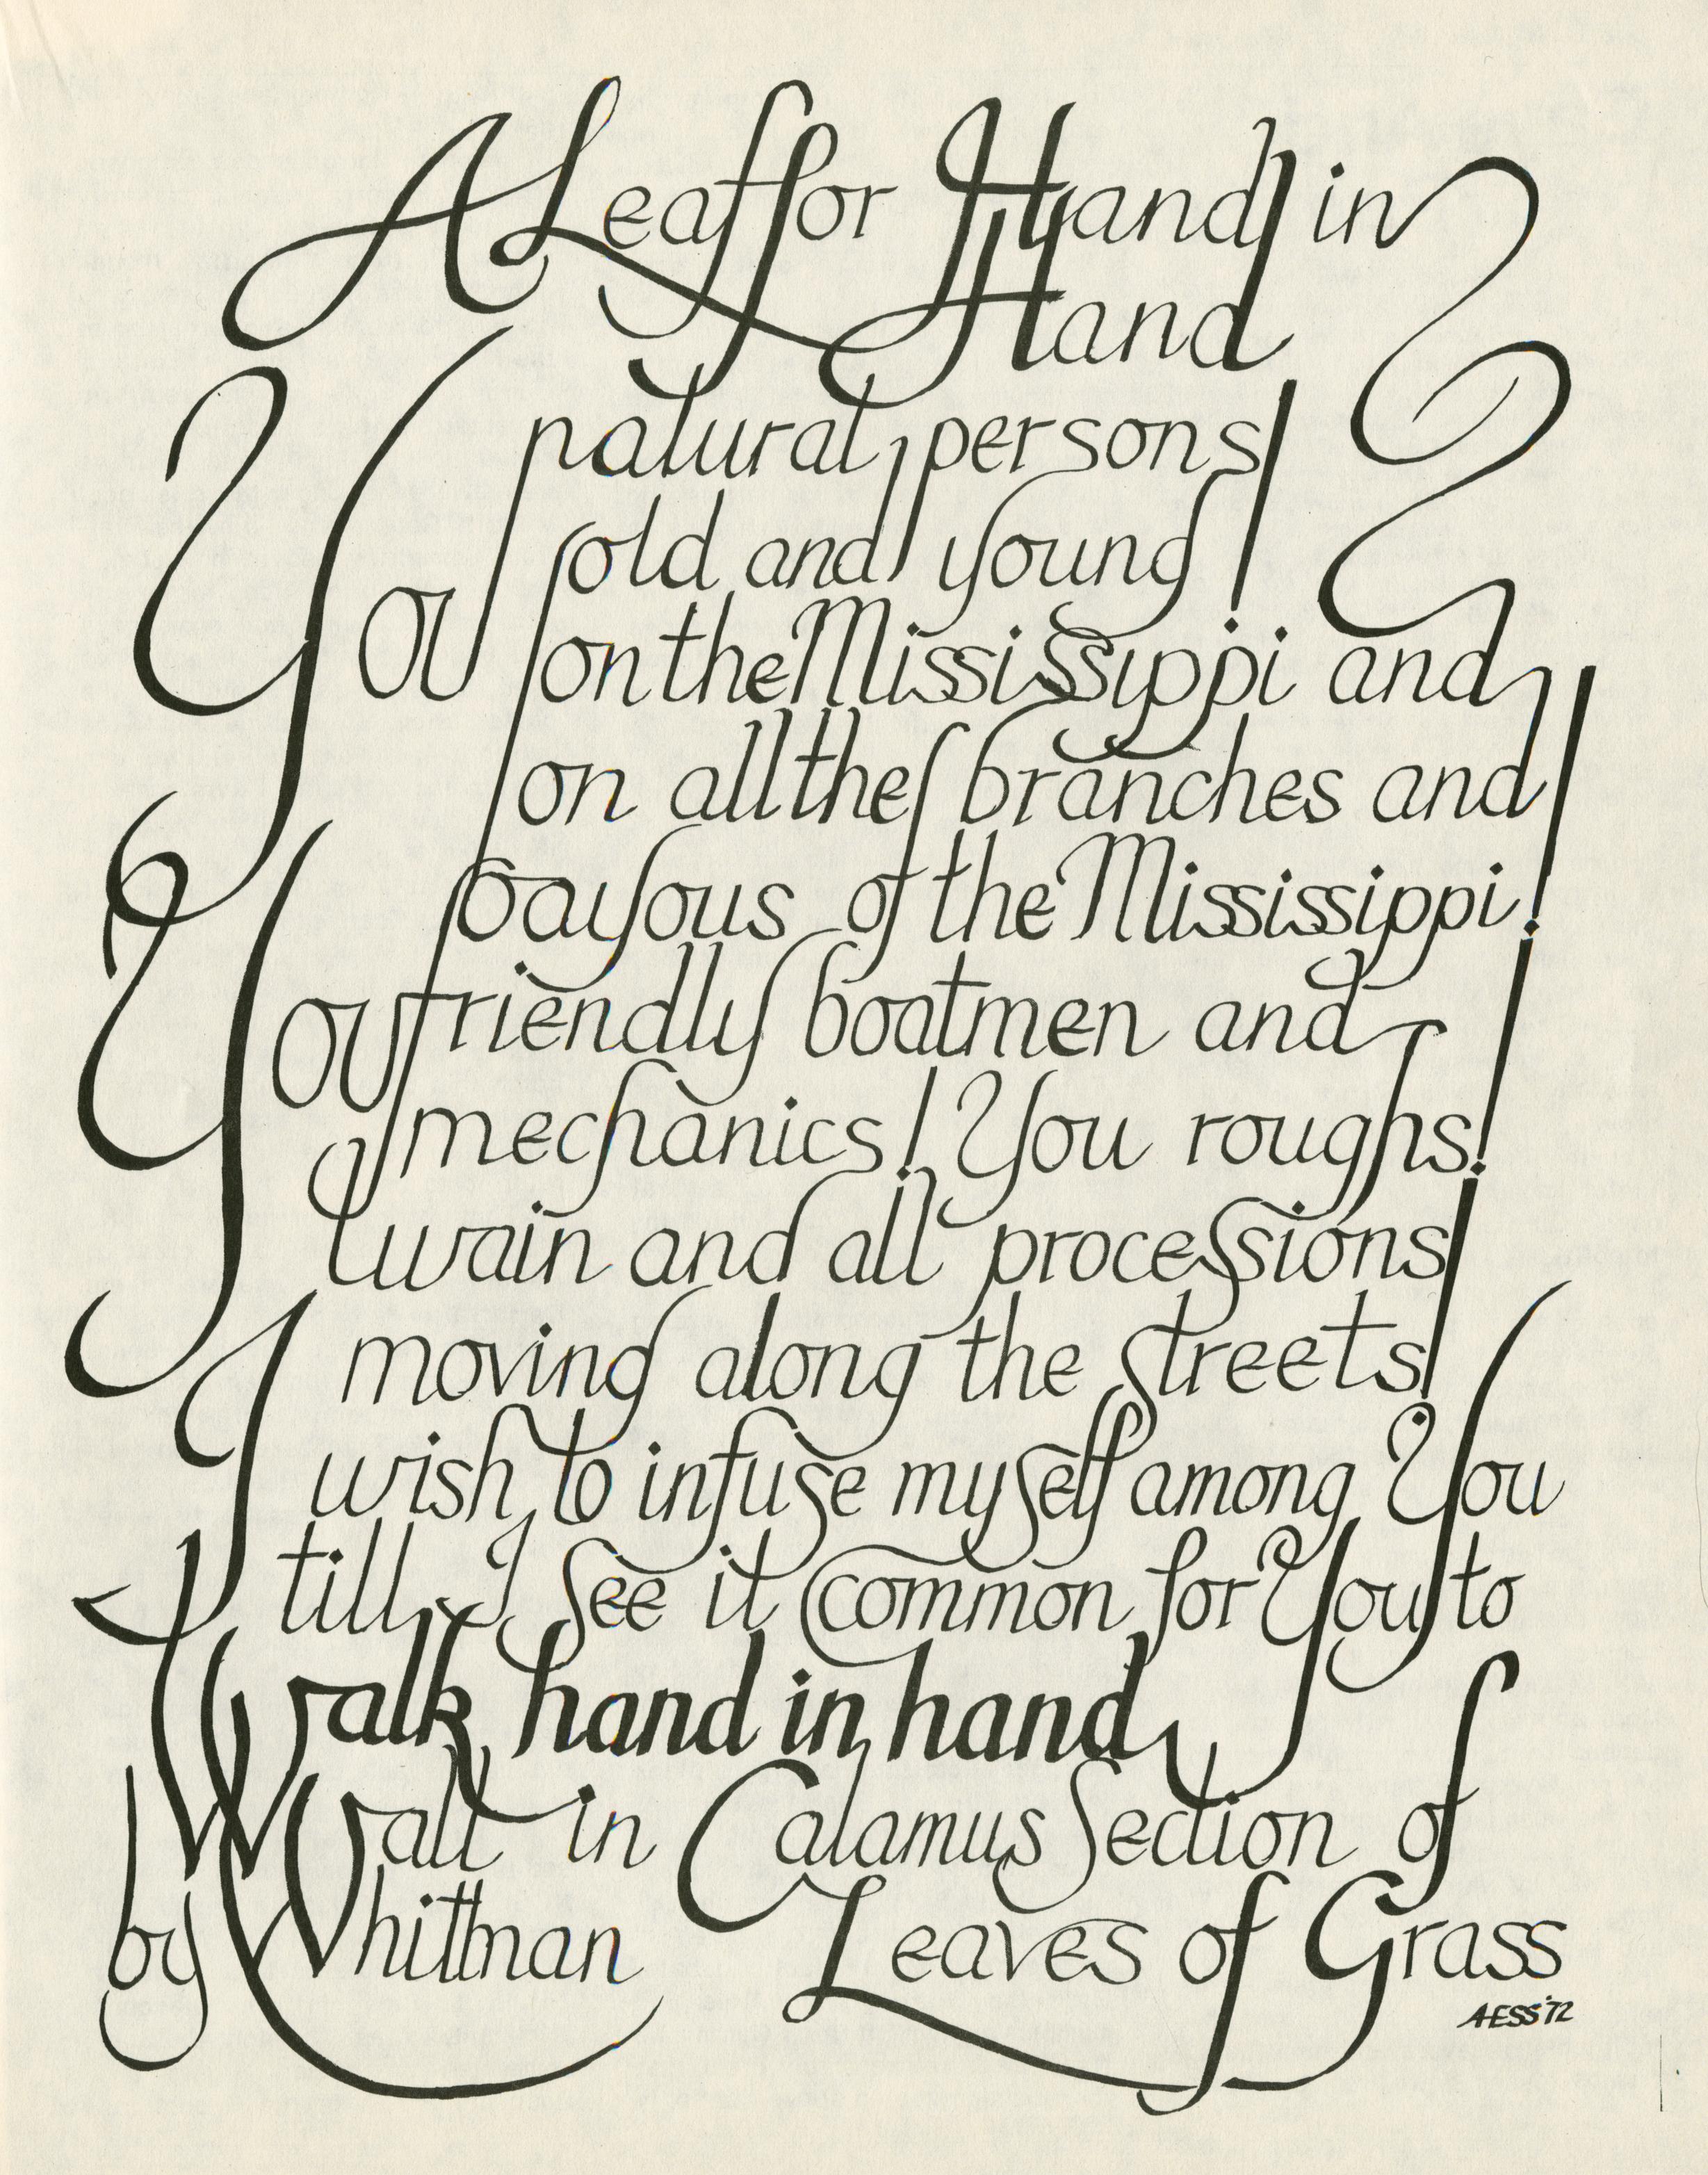 A Leaf for Hand in
Hand
You natural persons
old and young!
on the Mississippi and
on all the branches and
bayous of the Mississippi!
You friendly boatmen and
mechanics! You roughs!
twain and all processions
moving along the streets!
I wish to infuse myself among You
till I see it common for You to
Walk hand in hand
by Walt Whitman in Calamus Section of
Leaves of Grass
AESS '72